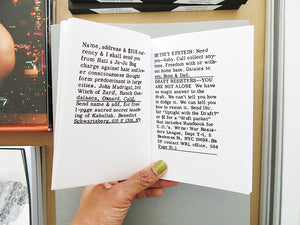 Name, address & $2US cur-
rency & I will send you
from Haiti a Ju-Ju Bag
charge against hate ender
in consciousness thought
form predominant in large
cities, John Madrigal, 3rd
Witch of Zarif, Ranch Gua-
dalasca, Oxnard, Calif.
Send name & add, for free
l-pge sacred secret lead-
ing of Kaballah. Benedict
Schwartzberg,
BETHEY EPSTEIN: Need
you--baby. Call collect any-
time. Freedom with or with-
out home base. Daisies to
you, Mom & Dad.
DRAFT RESISTERS--YOU
ARE NOT ALONE We have
no magic answer to the
draft. We can't tell you how
to dodge it. We can tell you
how to resist it. Send 10¢
for "Uptight with the Draft?"
or $1 for a "draft packet"
that includes Handbook for
C.O.'s. Write: War Resis-
ters League, Dept T-1, 5
Beekman St, NYC 10038. Or
call WRL office, 564
Page St.